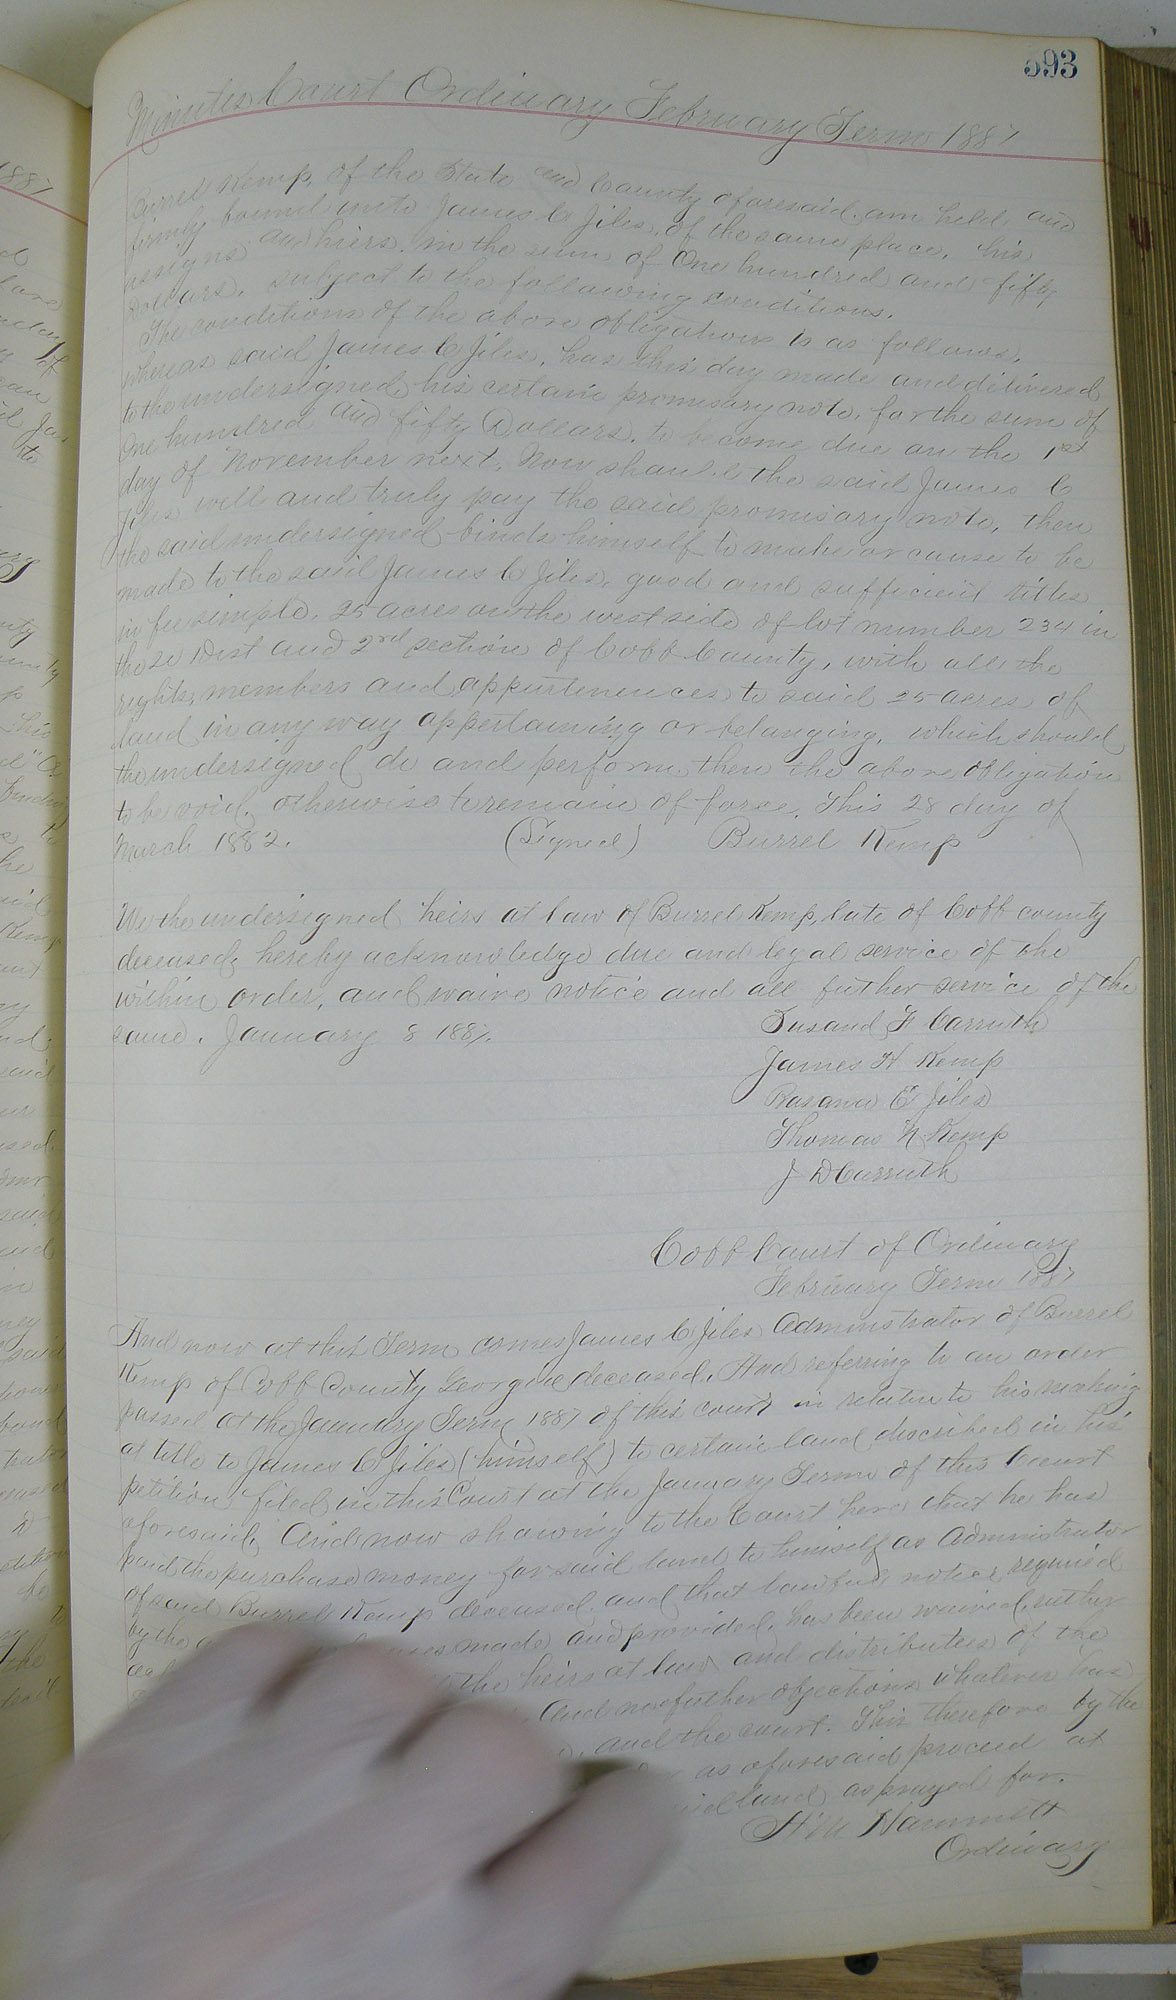 593
Minutes Court Ordinary February Term 1887
Burrel Kemp, of the State and County aforesaid, am held and
firmly bound unto James C Jiles, of the same place, his
assigns and hiers. in the sum of One hundred and fifty
Dollars, subject to the following conditions.
The conditions of the above obligation is as follows.
whereas said James C Jiles, has this day made and delivered
to the undersigned his certain promisary note, for the sum of
One hundred and fifty Dollars. to become due on the 1st
day of November next. Now should the said James C
Jiles well and truly pay the said promisary note, then
the said undersigned binds himself to make or cause to be
made to the said James C Jiles, good and sufficient titles
in fee simple. 25 acres on the west side of lot number 234 in
the 20 Dist and 2rd section of Cobb County, with all the
rights, members and appurtenences to said 25 acres of
land in any way appertaining or belonging, which should
the undersigned do and perform, then the above obligation
to be void, otherwise to remain of force. This 28 day of
March 1882. (Signed) Burrel Kemp
We the undersigned heirs at law of Burrel Kemp, late of Cobb county
deceased, hereby acknowledge due and legal service of the
within order, and waive notice and all futher service of the
same. January 8 1887.
Susand F Carruth
James H Kemp
Rosana E Jiles
Thomas N Kemp
J D Carruth
Cobb Court of Ordinary
February Term 1887
And now at this Term comes James C Jiles Administrator of Burrel
Kemp of Cobb County Georgia deceased, And referring to an order
passed at the January Term 1887 of this court in relation to his making
at title to James C Jiles (himself) to certain land described in his
petition filed in this Court at the January Term of this Court
aforesaid, And now showing to the Court here that he has
paid the purchase money for said land to himself as Administrator
of said Burrel Kemp deceased, and that lawful notice required
by the made and provided, has been waived,
the heirs at law and distributees of the
And no futher objections whatever has
and the court. This therefore by the
as aforesaid proceed at
land as prayed for.
H M Hammett
Ordinary